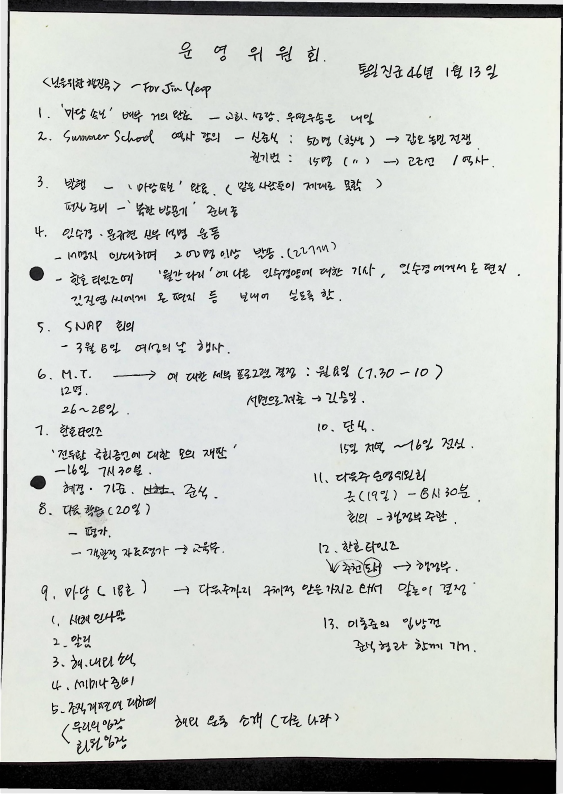 운영위원회.
통일진군 46年 1月 13일
<님을위한 행진곡> - For Jin Yeop
1. '마당 속보' 배부 거의 완료 - 교회, 식당, 우편우송은 내일
2. Summer School 역사 강의 - 신준식 : 50명 (학생) → 갑오 농민 전쟁
권기범 : 15명 (〃) → 고조선 / 역사.
3. 발행 - '마당속보' 완료. ( 맡은 사람들이 제대로 못함 )
편집 준비 - '북한 방문기' 준비중
4. 임수경 · 문규현 신부 석방 운동
- 200명이상 받음.
- 한호타임즈에 '월간다리'에 나온 임수경양에 대한 기사, 임수경에게서 온 편지.
김진엽씨에게 온 편지 등 보내어 싣도록 함.
5. SNAP 회의
- 3월 8일 여성의 날 행사.
6. M.T. → 에 대한 세부 프로그램 결정 : 월요일 (7.30 - 10)
12명. 서면으로제출 → 김승일.
26~28일.
7. 한호타임즈
'전두환 국회증언에 대한 모의 재판'
- 16일 7시30분.
혜경 · 기준. 준식.
8. 다음 학습 (20일)
- 평가.
- 객관적 자료평가 → 교육부.
9. 마당 (18호) → 다음주까지 구체적 안을가지고 와서 많은이 결정
1. 새해 인사말
2. 알림
3. 해·내외 소식
4. 세미나 준비
5. 조직개편에 대하여
< 우리의 입장
회원 입장
해외 운동 소개 (다른 나라)
10. 단식.
15일 저녁 ~ 16일 점심.
11. 다음주 운영위원회
금 (19일) - 6시 30분.
회의 - 행정부 주관.
12. 한호타임즈
추천 도서 → 행정부.
13. 이동준의 입방건
준식형과 함께 가기.